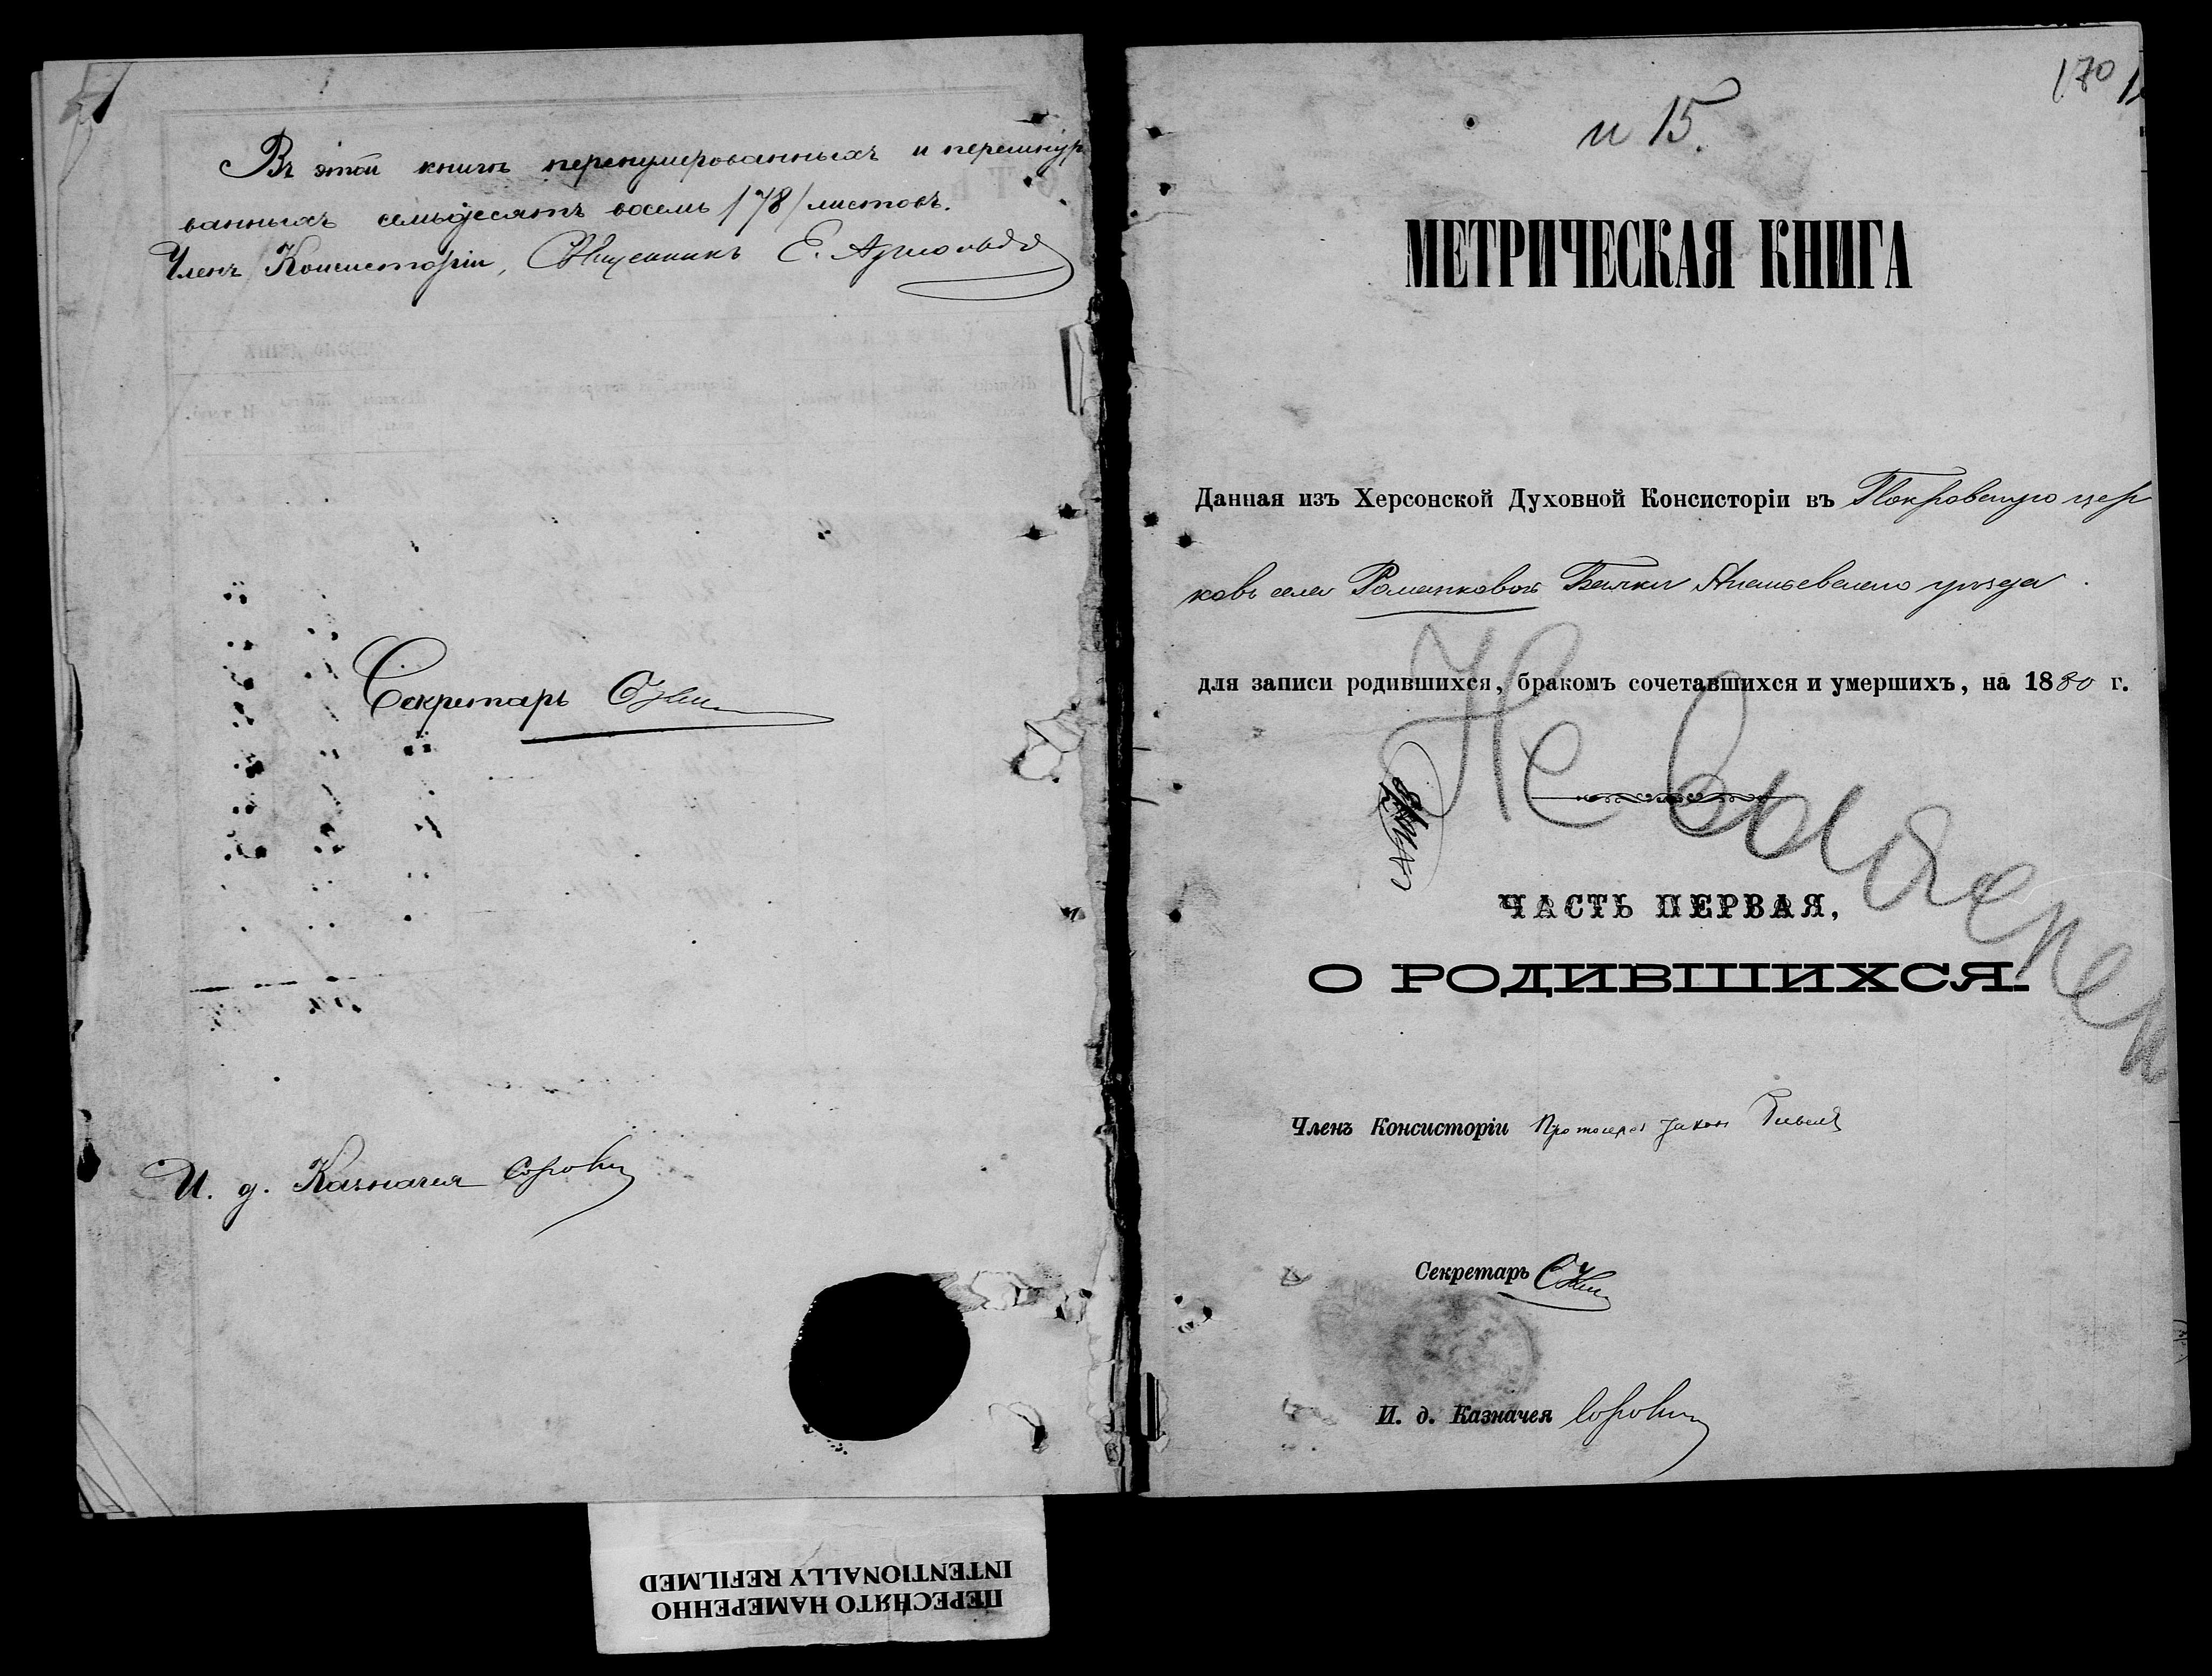 Въ этой книгѣ перенумерованныхъ и перешнуро
ванныхъ семьдесятъ восемь /78/ листовъ.
Членъ Консисторіи, Священникъ Е. Арнольдъ
Секретарь
И. д. Казначея
ПЕРЕСНЯТО НАМЕРЕННО
INTENTIONALLY REFILMED
170
и 15.
МЕТРИЧЕСКАЯ КНИГА
Данная изъ Херсонской Духовной Консисторіи въ Покровскую цер
ковь села Романковой Балки Ананьевскаго уѣзда
для записи родившихся, бракомъ сочетавшихся и умершихъ, на 1880 г.
Не
ЧАСТЬ ПЕРВАЯ,
О РОДИВШИХСЯ.
Членъ Консисторіи Протоіерей
Секретарь
И. д. Казначея